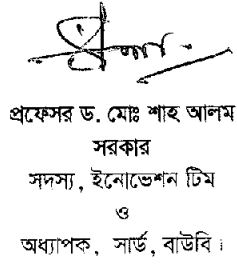 প্রফেসর ড. মোঃ শাহ আলম
সরকার
সদস্য, ইনোভেশন টিম
ও
অধ্যাপক, সার্ড, বাউবি।